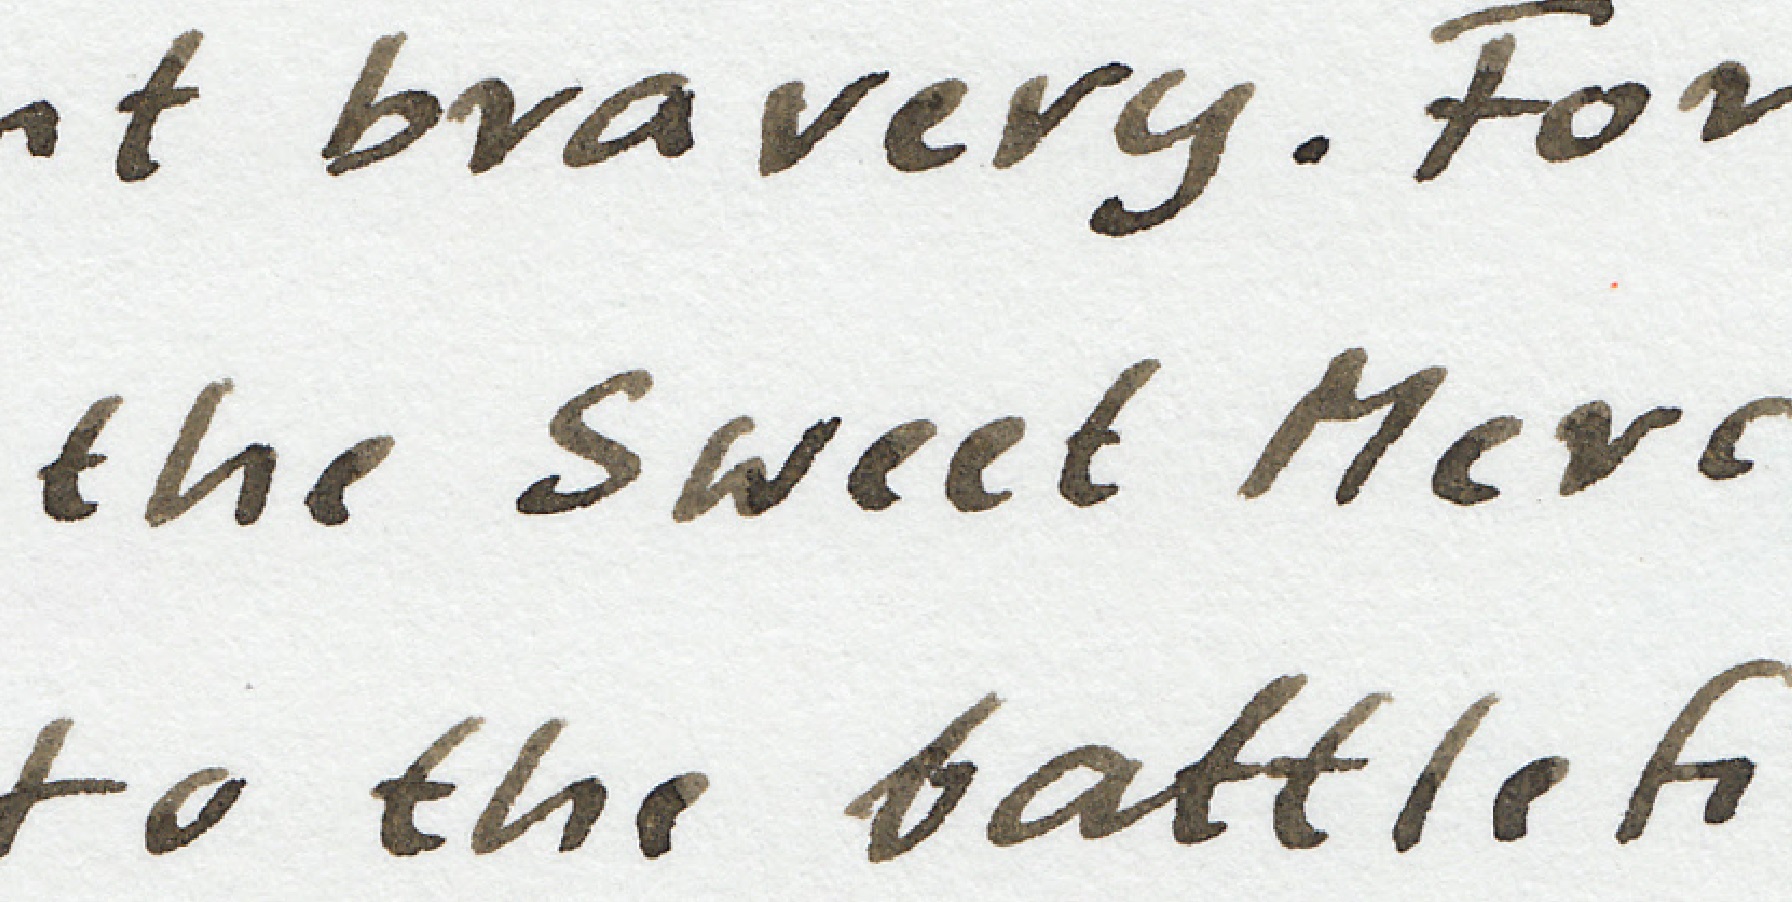 nt bravery. For
the Sweet Merc
to the battlefi